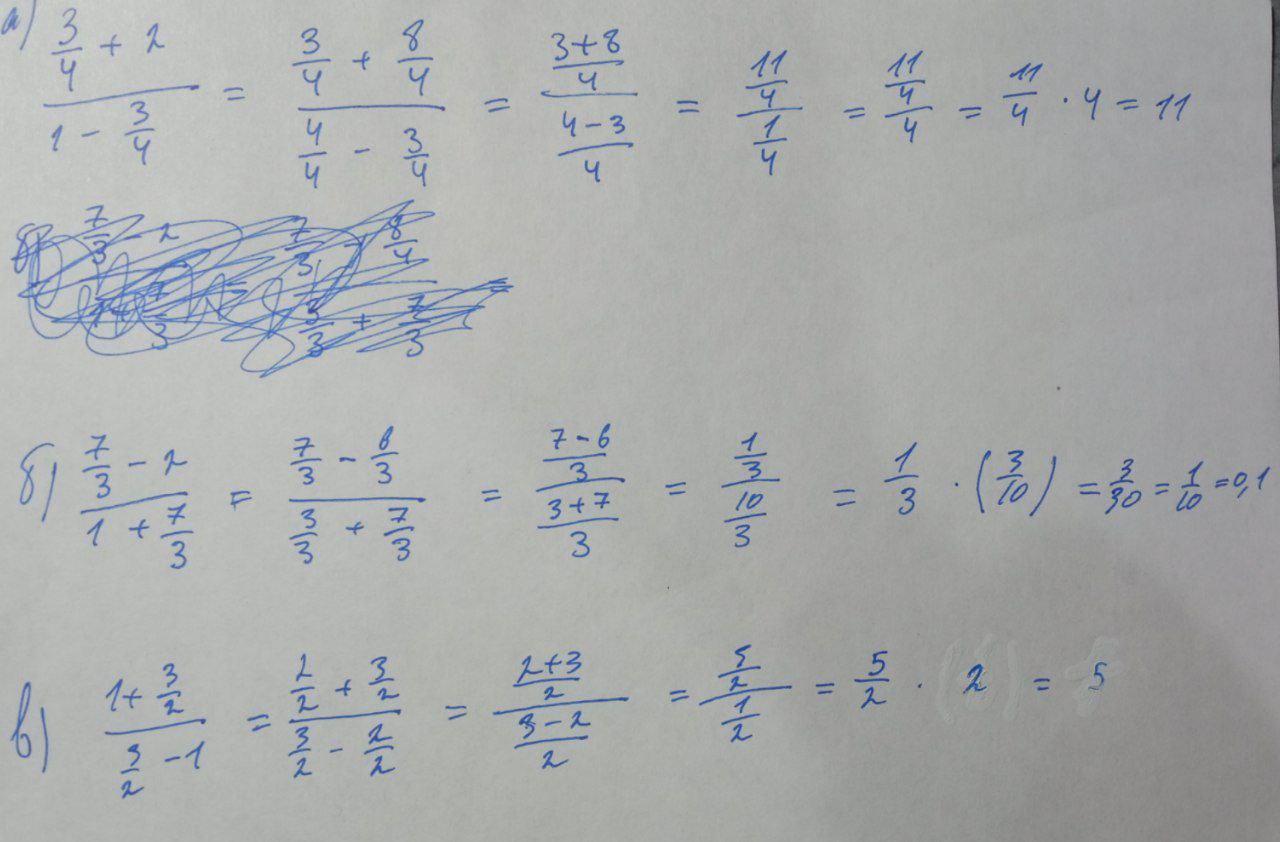 а) (3/4 + 2)/(1 - 3/4) = (3/4 + 8/4)/(4/4 - 3/4) = ((3+8)/4)/((4-3)/4) = (11/4)/(1/4) = (11/4)/4 = 11/4 · 4 = 11
б) (7/3 - 2)/(1 + 7/3) = (7/3 - 6/3)/(3/3 + 7/3) = ((7-6)/3)/((3+7)/3) = (1/3)/(10/3) = 1/3 · (3/10) = 3/30 = 1/10 = 0,1
в) (1 + 3/2)/(3/2 - 1) = (2/2 + 3/2)/(3/2 - 2/2) = ((2+3)/2)/((3-2)/2) = (5/2)/(1/2) = 5/2 · 2 = 5